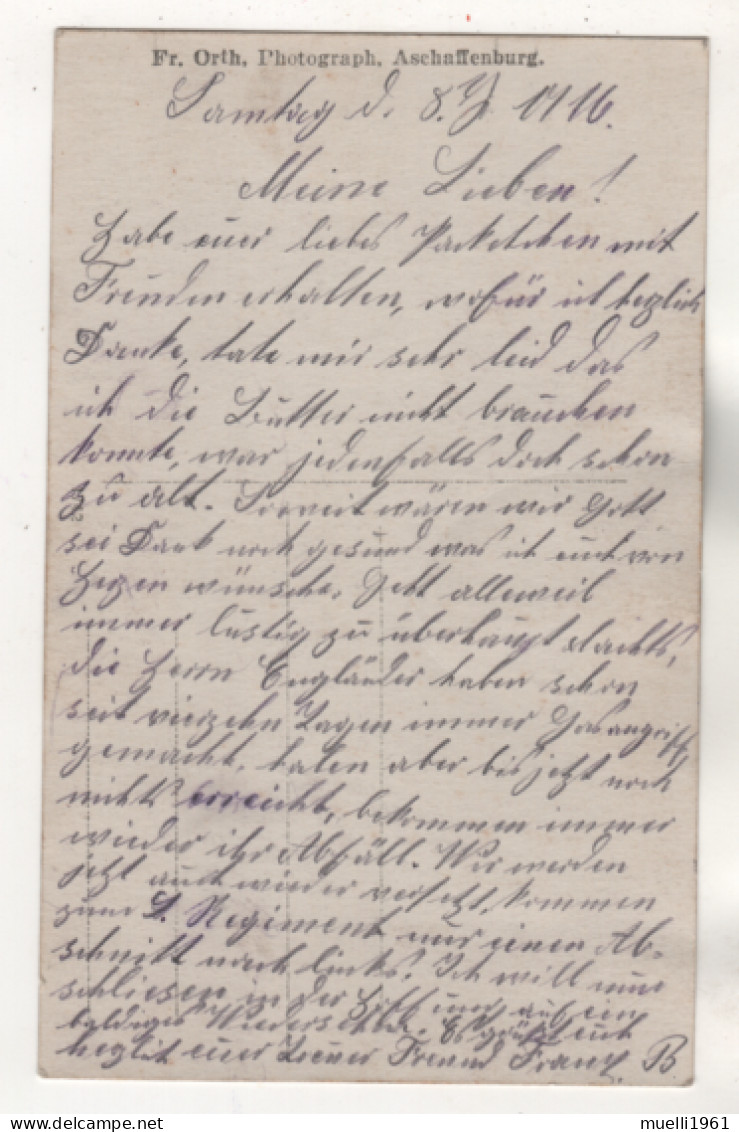 Fr. Orth, Photograph, Aschaffenburg.
Samstag d. 8. 1916.
Meine Lieben!
Habe euer liebes Packetchen mit
Freuden erhalten, wofür ich herzlich
Danke, tate mir sehr leid das
ich die Butter nicht brauchen
konnte, war jedenfalls doch schon
zu alt. Soweit wären wir Gott
sei Dank noch gesund was ich euch von
Herzen wünsche. Geht alleweil
immer lustig zu überhaupt Nachts,
die Herrn Engländer haben schon
seit vierzehn Tagen immer Gasangriff
gemacht, haben aber bis jetzt noch
nichts erreicht, bekommen immer
wieder ihr Abfäll. Wir werden
jetzt auch wieder versetzt, kommen
zum Regiment nur einen Ab-
schnitt nach links. Ich will nun
schliesen in der Hoffnung auf ein
baldiges Wiedersehen. Es grüßt euch
herzlich euer Freund Franz B.
muelli1961